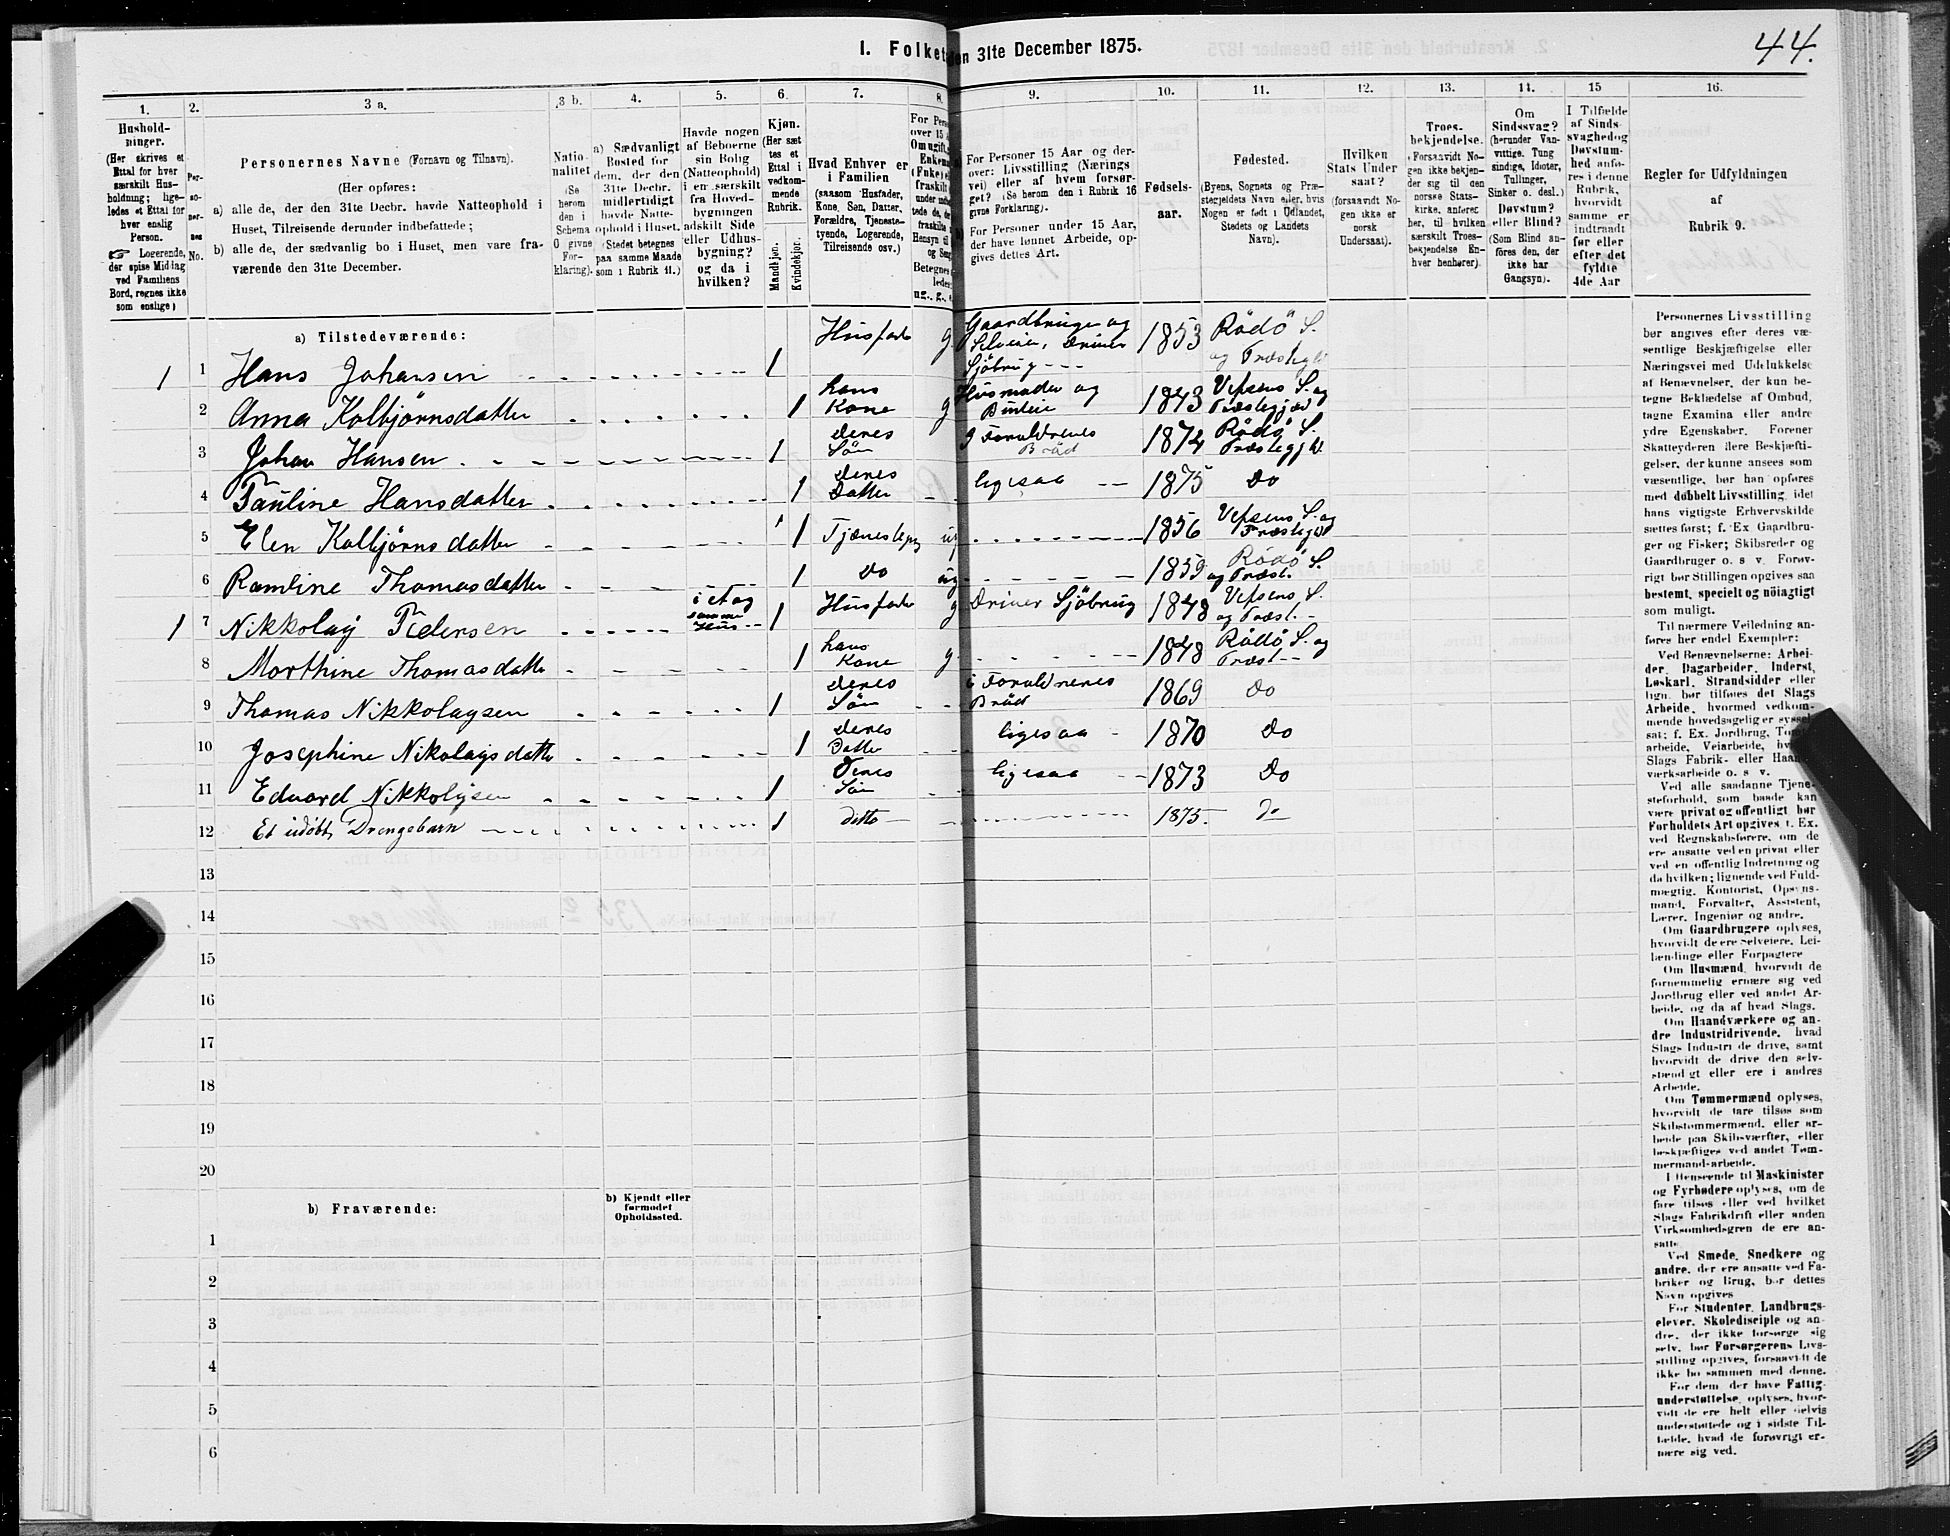 44.
I. Folket
den 31te December 1875.
1. 2. 3 a. 3 b. 4. 5. 6. 7. 8. 9. 10. 11. 12. 13. 14. 15 16.
Hushold-
ninger.
(Her skrives et
Ettal for hver
særskilt Hus-
holdning; lige-
ledes et Ettal for
hver enslig
Person.
☞ Logerende,
der spise Middag
ved Familiens
Bord, regnes ikke
som enslige)
Per-
so-
ner-
nes
No.
Personernes Navne (Fornavn og Tilnavn).
(Her opføres:
a) alle de, der den 31te Decbr. havde Natteophold i
Huset, Tilreisende derunder indbefattede;
b) alle de, der sædvanlig bo i Huset, men vare fra-
værende den 31te December.
Natio-
nalitet
(Se
herom
den i
Schema
O givne
For-
klaring).
a) Sædvanligt
Bosted for
dem, der den
31te Decbr.
midlertidigt
havde Natte-
ophold i Huset.
(Stedet betegnes
paa samme Maade
som i Rubrik 11.)
Havde nogen
af Beboerne
sin Bolig
(Natteophold)
i en særskilt
fra Hoved-
bygningen
adskilt Side
eller Udhus-
bygning?
og da i
hvilken?
Kjøn.
(Her sæt
tes et
Ettal i
vedkom-
mende
Rubrik.
Mandkjøn.
Kvindekjøn.
Hvad Enhver er
i Familien
(saasom Husfader,
Kone, Søn, Datter,
Forældre, Tjeneste-
tyende, Logerende,
Tilreisende osv.)
For Pers
over 15
Om ugift,
Enkem
(Enke)
fraskilt
ug., g.,
For Personer 15 Aar og der-
over: Livsstilling (Nærings
vei) eller af hvem forsør-
get? (Se herom den i Rubrik 16
givne Forklaring).
For Personer under 15 Aar,
der have lønnet Arbeide, op-
gives dettes Art.
Fødsels-
aar.
Fødested.
(Byens, Sognets og Præ-
stegjeldets Navn eller, hvis
Nogen er født i Udlandet,
Stedets og Landets
Navn).
Hvilken
Stats Under
saat?
(forsaavidt No-
gen ikke er
norsk
Undersaat).
Troes-
bekjendelse.
(Forsaavidt No-
gen ikke bekjen-
der sig til den
norske Stats-
kirke, anføres
her, til hvilken
særskilt Troes-
bekjendelse En-
hver henhører).
Om
Sindssvag?
(herunder Van-
vittige, Tung
sindige, Idioter,
Tullinger,
Sinker o. desl.)
Døvstum?
eller Blind?
(Som Blind an-
føres den, der
ikke har
Gangsyn).
I Tilfælde
af Sinds-
svaghed og
Døvstum-
hed anfø-
res i denne
Rubrik,
hvorvidt
samme er
indtraadt
før eller
efter det
fyldte
4de Aar
Regler for Udfyldningen
af
Rubrik 9.
a) Tilstedeværende:
1 1 Hans Johansen 1 Husfader g. Gaardbruger og Selveier, driver Sjöbrug 1853 Rödö S. og Præstegjld
2 Anna Kolbjörnsdatter 1 hans Kone g 1843 Vefsens S. og Præstegjæld
3 Johan Hansen 1 deres Sön Forældrenes Bröd 1874 Rödö S. Præstegjld.
4 Pauline Hansdatter 1 deres Datter ligesaa 1875 Do
5 Elen Kolbjörnsdatter 1 Tjenestepig ug 1856 Vefsens S. og Præstegjld
6 Ramline Thomasdatter 1 Do ug 1859 Rödö S. og Præst.
1 7 Nikkolay Pedersen i et og samme Hus 1 Husfader g Driver Sjöbrug 1848 Vefsens S. og Præst.
8 Morthine Thomasdatter 1 hans Kone g 1848 Rödö S. og Præst
9 Thomas Nikkolaysen 1 deres Sön i Forældrenes Bröd 1869 Do
10 Josephine Nikolaysdatter 1 deres Datter ligesaa 1870 Do
11 Edvard Nikkolysen 1 Deres Sön ligesaa 1873 Do
12 Et udöbt Drengebarn 1 ditto 1875. Do
13
14
15
16
17
18
19
20
b) Fraværende:
b) Kjendt eller
formodet
Opholdssted.
1
2
3
4
5
6
Personernes Livsstilling
bør angives efter deres væ-
sentlige Beskjæftigelse eller
Næringsvei med Udelukkelse
af Benævnelser, der kun be-
tegne Beklædelse af Ombud,
tagne Examina eller andre
ydre Egenskaber. Forener
Skatteyderen flere Beskjæfti-
gelser, der kunne ansees som
væsentlige, bør han opføres
med dobbelt Livsstilling, idet
hans vigtigste Erhvervskilde
sættes først; f. Ex Gaardbru-
ger og Fisker; Skibsreder og
Gaardbruger o. s v. Forøv-
rigt bør Stillingen opgives saa
bestemt, specielt og nøiagtigt
som muligt.
Til nærmere Veiledning an-
føres her endel Exempler:
Ved Benævnelserne: Arbei-
der, Dagarbeider, Inderst,
Løskarl, Strandsidder eller
lign. bør tilføies det Slags
Arbeide, hvormed vedkom-
mende hovedsagelig er syssel
sat; f. Ex. Jordbrug, Tomt
arbeide, Veiarbeide, hv
Slags Fabrik- eller Haan
værksarbeide o. s v.
Ved alle saadanne Tjene-
steforhold, som baade kan
være privat og offentligt bør
Forholdets Art opgives, f. Ex.
ved Regnskabsførere, om de
ere ansatte ved en privat eller
ved en offentlig Indretning og
da hvilken; lignende ved Fuld-
mægtig, Kontorist, Opsyns-
mand, Forvalter, Assistent,
Lærer, Ingeniør og andre.
Om Gaardbrugere oplyses,
hvorvidt de ere Selveiere, Lei-
lændinge eller Forpagtere
Om Husmænd, hvorvidt de
fornemmelig ernære sig ved
Jordbrug eller ved andet Ar-
beide, og da af hvad Slags.
Om Haandværkere og an-
dre Industridrivende, hvad
Slags Industri de drive, samt
hvorvidt de drive den selv-
stændigt eller ere i andres
Arbeide.
Om Tømmermænd oplyses,
hvorvidt de fare tilsøs som
Skibstømmermænd, eller ar-
beide paa Skibsværfter, eller
beskjæftiges ved andet Tøm-
mermand-arbeide.
I Henseende til Maskinister
og Fyrbødere oplyses, om de
fare tilsøs eller ved hvilket
Slags Fabrikdrift eller anden
Virksomhedsgren de ere an-
satte
Ved Smede, Snedkere og
andre, der ere ansatte ved Fa-
briker og Brug, bør dettes
Navn opgives
For Studenter, Landbrugs-
elever, Skoledisciple og an-
dre, der ikke forsørge sig
selv, bør Forsørgerens Livs-
stilling opgives, forsaavidt de
ikke bo sammen med denne.
For dem, der have Fattig-
understøttelse, oplyses, hvor-
vidt de ere helt eller delvis
understøttede og i sidste Til-
fælde, hvad de forøvrigt er-
nære sig ved.